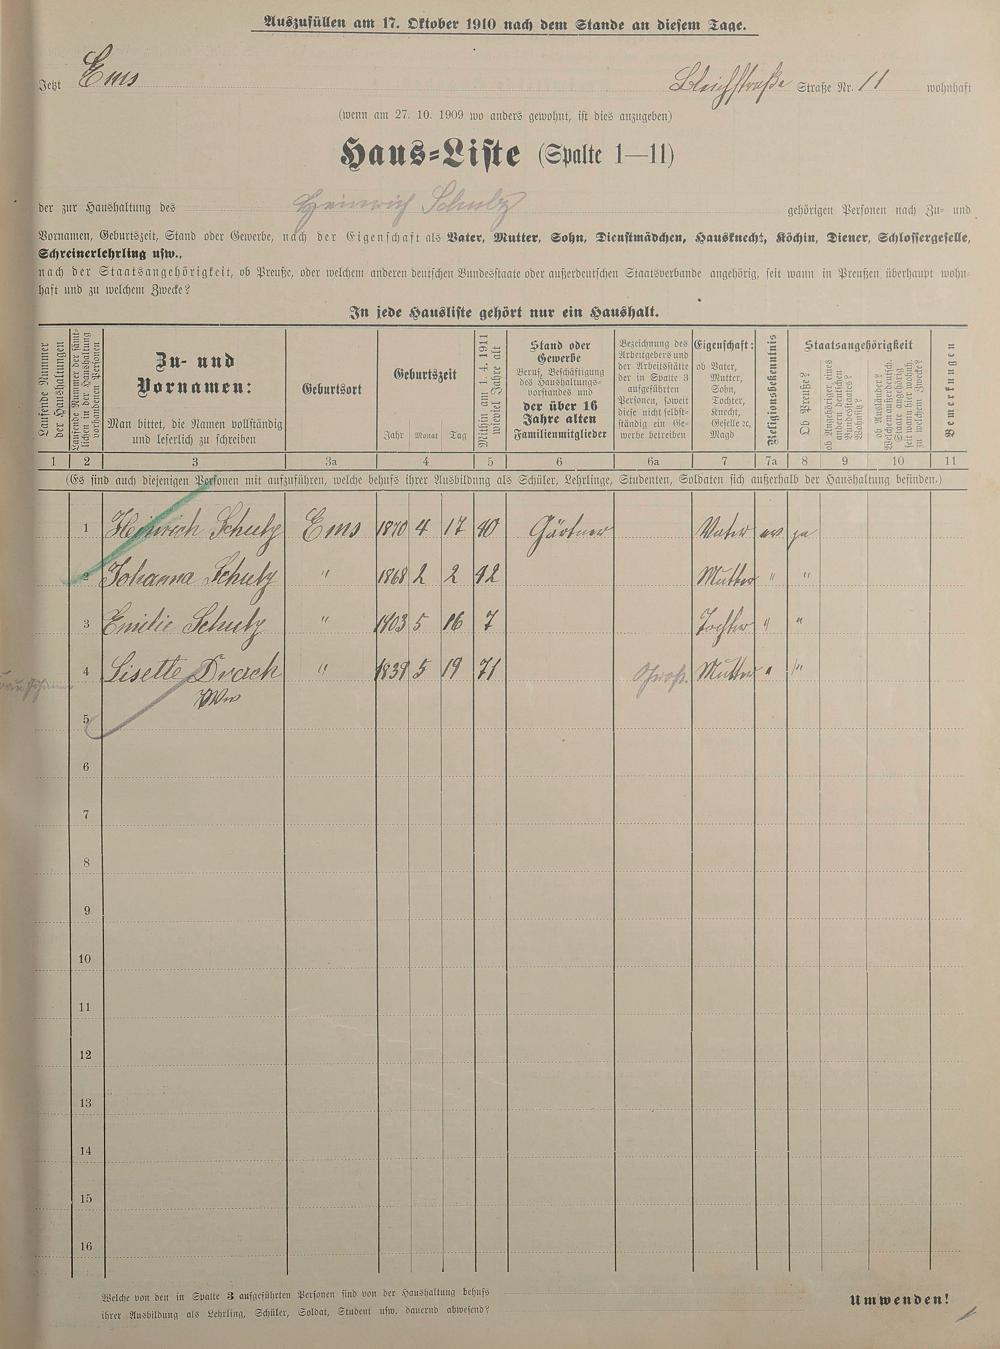 Auszufüllen am 17. Oktober 1910 nach dem Stande an diesem Tage.
Jetzt Ems Bleichstraße Straße Nr. 11 wohnhaft
(wenn am 27. 10. 1909 wo anders gewohnt, ist dies anzugeben)
Haus-Liste (Spalte 1—11)
der zur Haushaltung des Heinrich Schulz gehörigen Personen nach Zu- und
Vornamen, Geburtszeit, Stand oder Gewerbe, nach der Eigenschaft als Vater, Mutter, Sohn, Dienstmädchen, Hausknecht, Köchin, Diener, Schlossergeselle,
Schreinerlehrling usw.,
nach der Staatsangehörigkeit, ob Preuße, oder welchem anderen deutschen Bundesstaate oder außerdeutschen Staatsverbande angehörig, seit wann in Preußen überhaupt wohn-
haft und zu welchem Zwecke?
In jede Hausliste gehört nur ein Haushalt.
Laufende Nummer
der Haushaltungen
Laufende Nummer der sämt-
lichen in der Haushaltung
vorhandenen Personen
Zu- und
Vornamen:
Man bittet, die Namen vollständig
und leserlich zu schreiben
Geburtsort
Geburtszeit
Jahr Monat Tag
Mithin am 1. 4. 1911
wieviel Jahre alt
Stand oder
Gewerbe
Beruf, Beschäftigung
des Haushaltungs-
vorstandes und
der über 16
Jahre alten
Familienmitglieder
Bezeichnung des
Arbeitgebers und
der Arbeitsstätte
der in Spalte 3
aufgeführten
Personen, soweit
diese nicht selbst-
ständig ein Ge-
werbe betreiben
Eigenschaft:
ob Vater,
Mutter,
Sohn,
Tochter,
Knecht,
Geselle ec,
Magd
Religionsbekenntnis
Staatsangehörigkeit
Ob Preuße?
ob Angehöriger eines
andern deutschen
Bundesstaates?
Wohnsitz?
ob Ausländer?
Welchem außerdeutsch.
Staate angehörig
seit wann hier wohnh.
zu welchem Zwecke?
Bemerkungen
1 2 3 3a 4 5 6 6a 7 7a 8 9 10 11
(Es sind auch diejenigen Personen mit aufzuführen, welche behufs ihrer Ausbildung als Schüler, Lehrlinge, Studenten, Soldaten sich außerhalb der Haushaltung befinden.)
1 Heinrich Schulz Ems 1870 4 17 40 Gärtner Vater ev ja
2 Johanna Schulz " 1868 2 2 42 Mutter " "
3 Emilie Schulz " 1903 5 16 7 Tochter " "
4 Lisette Drach " 1839 5 19 71 Groß. Mutter " "
Wwe
5
6
7
8
9
10
11
12
13
14
15
16
Welche von den in Spalte 3 aufgeführten Personen sind von der Haushaltung behufs
ihrer Ausbildung als Lehrling, Schüler, Soldat, Student usw. dauernd abwesend?
Umwenden!